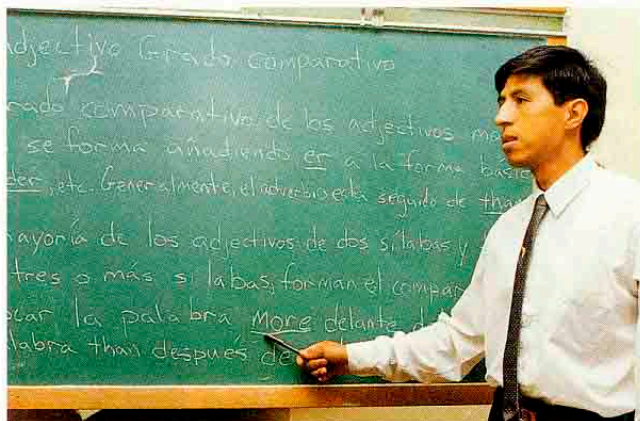 adjectivo Grado comparativo
rado comparativo de los adjectivos mo
se forma añadiendo er a la forma basic
der, etc. Generalmente, el adverbio está seguido de than
ayoría de los adjectivos de dos sílabas y
tres o más sílabas, forman el compar
ocar la palabra More delante d
labra than después de